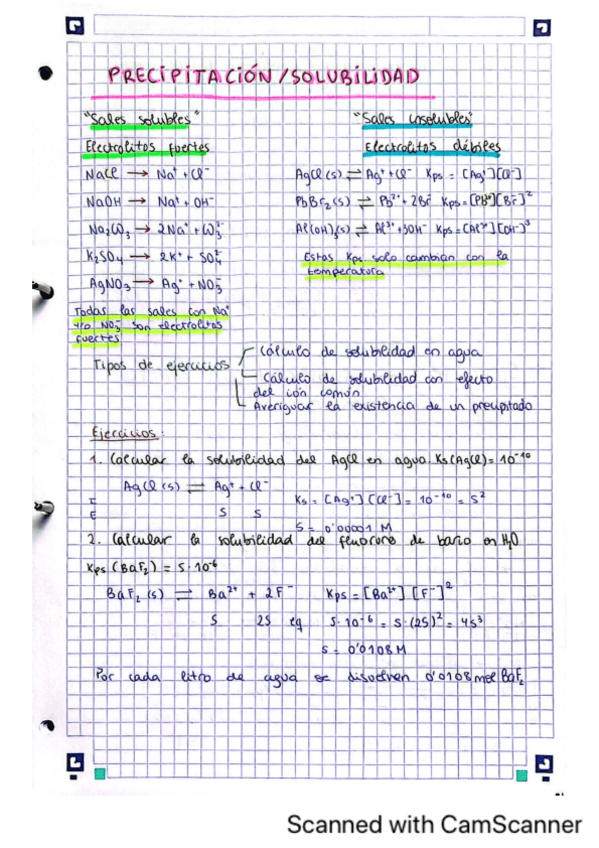 PRECIPITACIÓN/SOLUBILIDAD
"Sales solubles"
Electrolitos fuertes
NaCl → Na⁺ + Cl⁻
NaOH → Na⁺ + OH⁻
Na₂CO₃ → 2Na⁺ + CO₃²⁻
K₂SO₄ → 2K⁺ + SO₄²⁻
AgNO₃ → Ag⁺ + NO₃⁻
Todas las sales con Na⁺
y/o NO₃⁻ son electrolitos
fuertes
"Sales insolubles"
Electrolitos débiles
AgCl (s) ⇌ Ag⁺ + Cl⁻ Kps = [Ag⁺][Cl⁻]
PbBr₂ (s) ⇌ Pb²⁺ + 2Br⁻ Kps = [Pb²⁺][Br⁻]²
Al(OH)₃(s) ⇌ Al³⁺ + 3OH⁻ Kps = [Al³⁺][OH⁻]³
Estas Kps solo cambian con la
temperatura
Tipos de ejercicios
Cálculo de solubilidad en agua
Cálculo de solubilidad con efecto
del ión común
Averiguar la existencia de un precipitado
Ejercicios:
1. Calcular la solubilidad del AgCl en agua. Ks (AgCl) = 10⁻¹⁰
AgCl (s) ⇌ Ag⁺ + Cl⁻
I
E S S
Ks = [Ag⁺] [Cl⁻] = 10⁻¹⁰ = S²
S = 0'00001 M
2. Calcular la solubilidad del fluoruro de bario en H₂O
Kps (BaF₂) = 5·10⁻⁶
BaF₂ (s) ⇌ Ba²⁺ + 2F⁻ Kps = [Ba²⁺] [F⁻]²
S 2S eq 5·10⁻⁶ = S·(2S)² = 4S³
S = 0'0108 M
Por cada litro de agua se disuelven 0'0108 mol BaF₂
Scanned with CamScanner